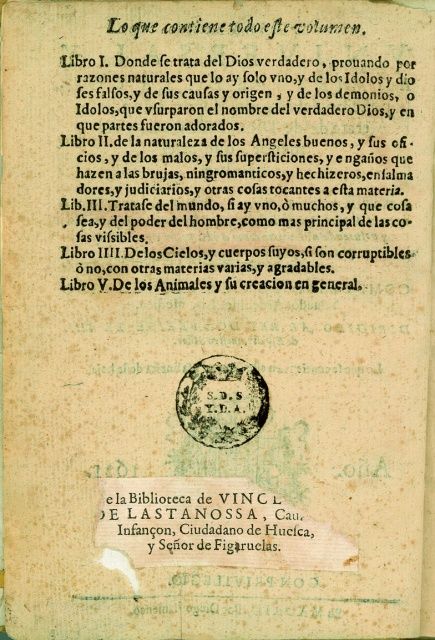 Lo que contiene todo este volumen.
Libro I. Donde se trata del Dios verdadero, prouando por
razones naturales que lo ay solo vno, y de los Idolos y dio
ses falsos, y de sus causas y origen, y de los demonios, o
Idolos, que vsurparon el nombre del verdadero Dios, y en
que partes fueron adorados.
Libro II. de la naturaleza de los Angeles buenos, y sus ofi-
cios, y de los malos, y sus supersticiones, y engaños que
hazen a las brujas, ningromanticos, y hechizeros, ensalma
dores, y judiciarios, y otras cosas tocantes a esta materia.
Lib. III. Tratase del mundo, si ay vno, ò muchos, y que cosa
sea, y del poder del hombre, como mas principal de las co-
sas vissibles.
Libro IIII. De los Cielos, y cuerpos suyos, si son corruptibles
ò no, con otras materias varias, y agradables.
Libro V. De los Animales y su creacion en general.
S. D. S
Y. D. A.
e la Biblioteca de VINCE
DE LASTANOSSA, Cau
Infançon, Ciudadano de Huesca,
y Señor de Figaruelas.